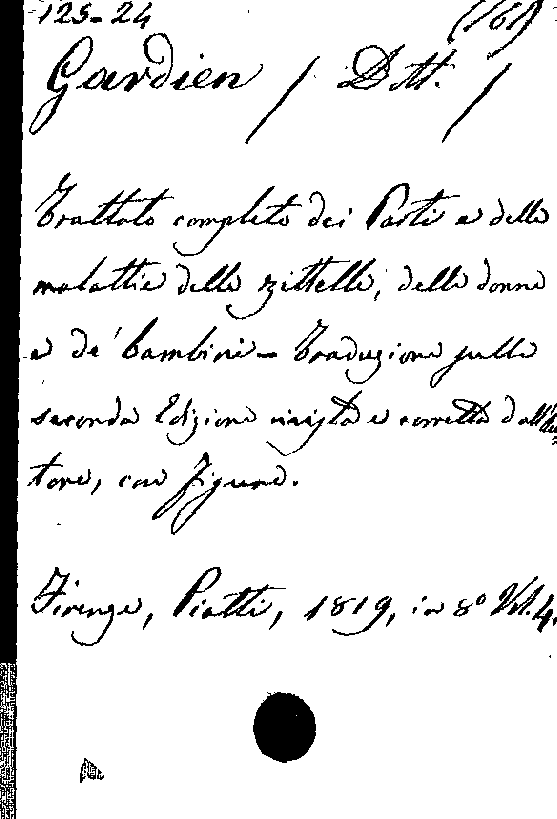 125-24 (161)
Gardien / Dott. /
Trattato completo dei Parti e delle
malattie delle zittelle, delle donne
e de' bambini - Traduzione sulla
seconda Edizione rivista e corretta dall'Au=
tore, con figure.
Firenze, Piatti, 1819, in 8º Vol. 4.